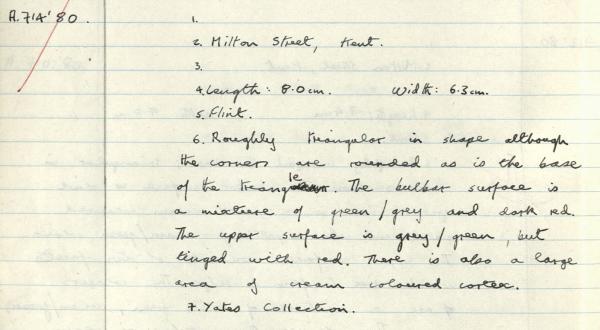 A.714'80. 1.
2. Milton Street, Kent.
3.
4. Length: 8.0cm. Width: 6.3cm.
5. Flint.
6. Roughly triangular in shape although
the corners are rounded as is the base
of the triangle. The bulbar surface is
a mixture of green/grey and dark red.
The upper surface is grey/green, but
tinged with red. There is also a large
area of cream coloured cortex.
7. Yates Collection.